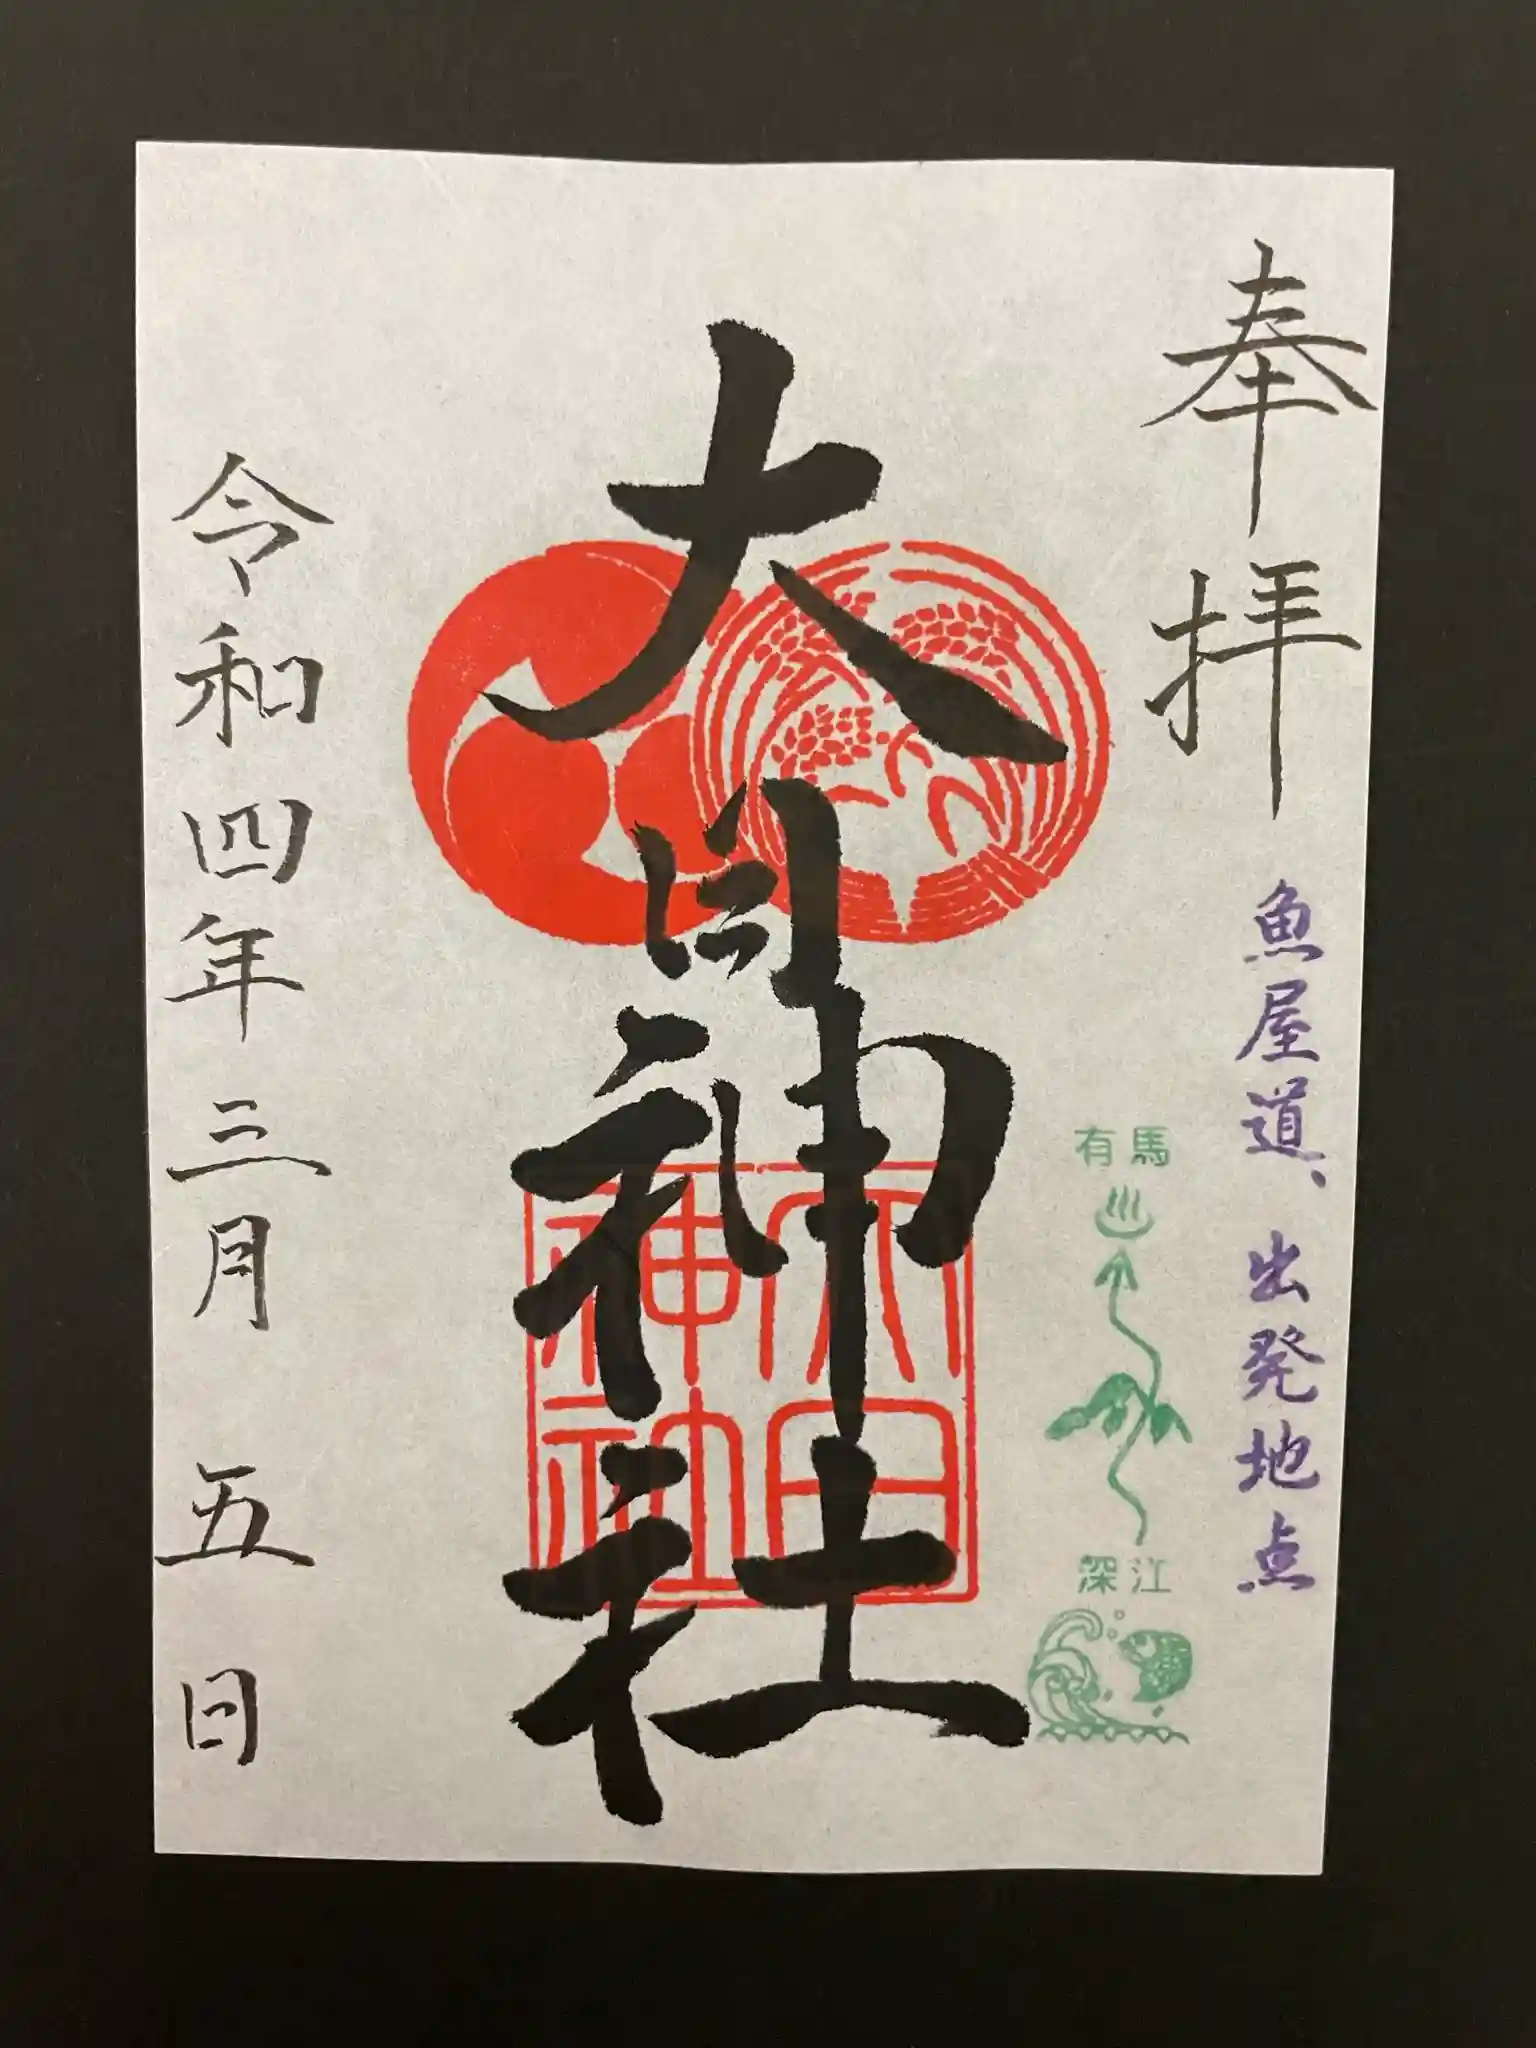 奉拝
魚屋道、出発地点
有馬
深江
大日神社
大日神社
令和四年三月五日